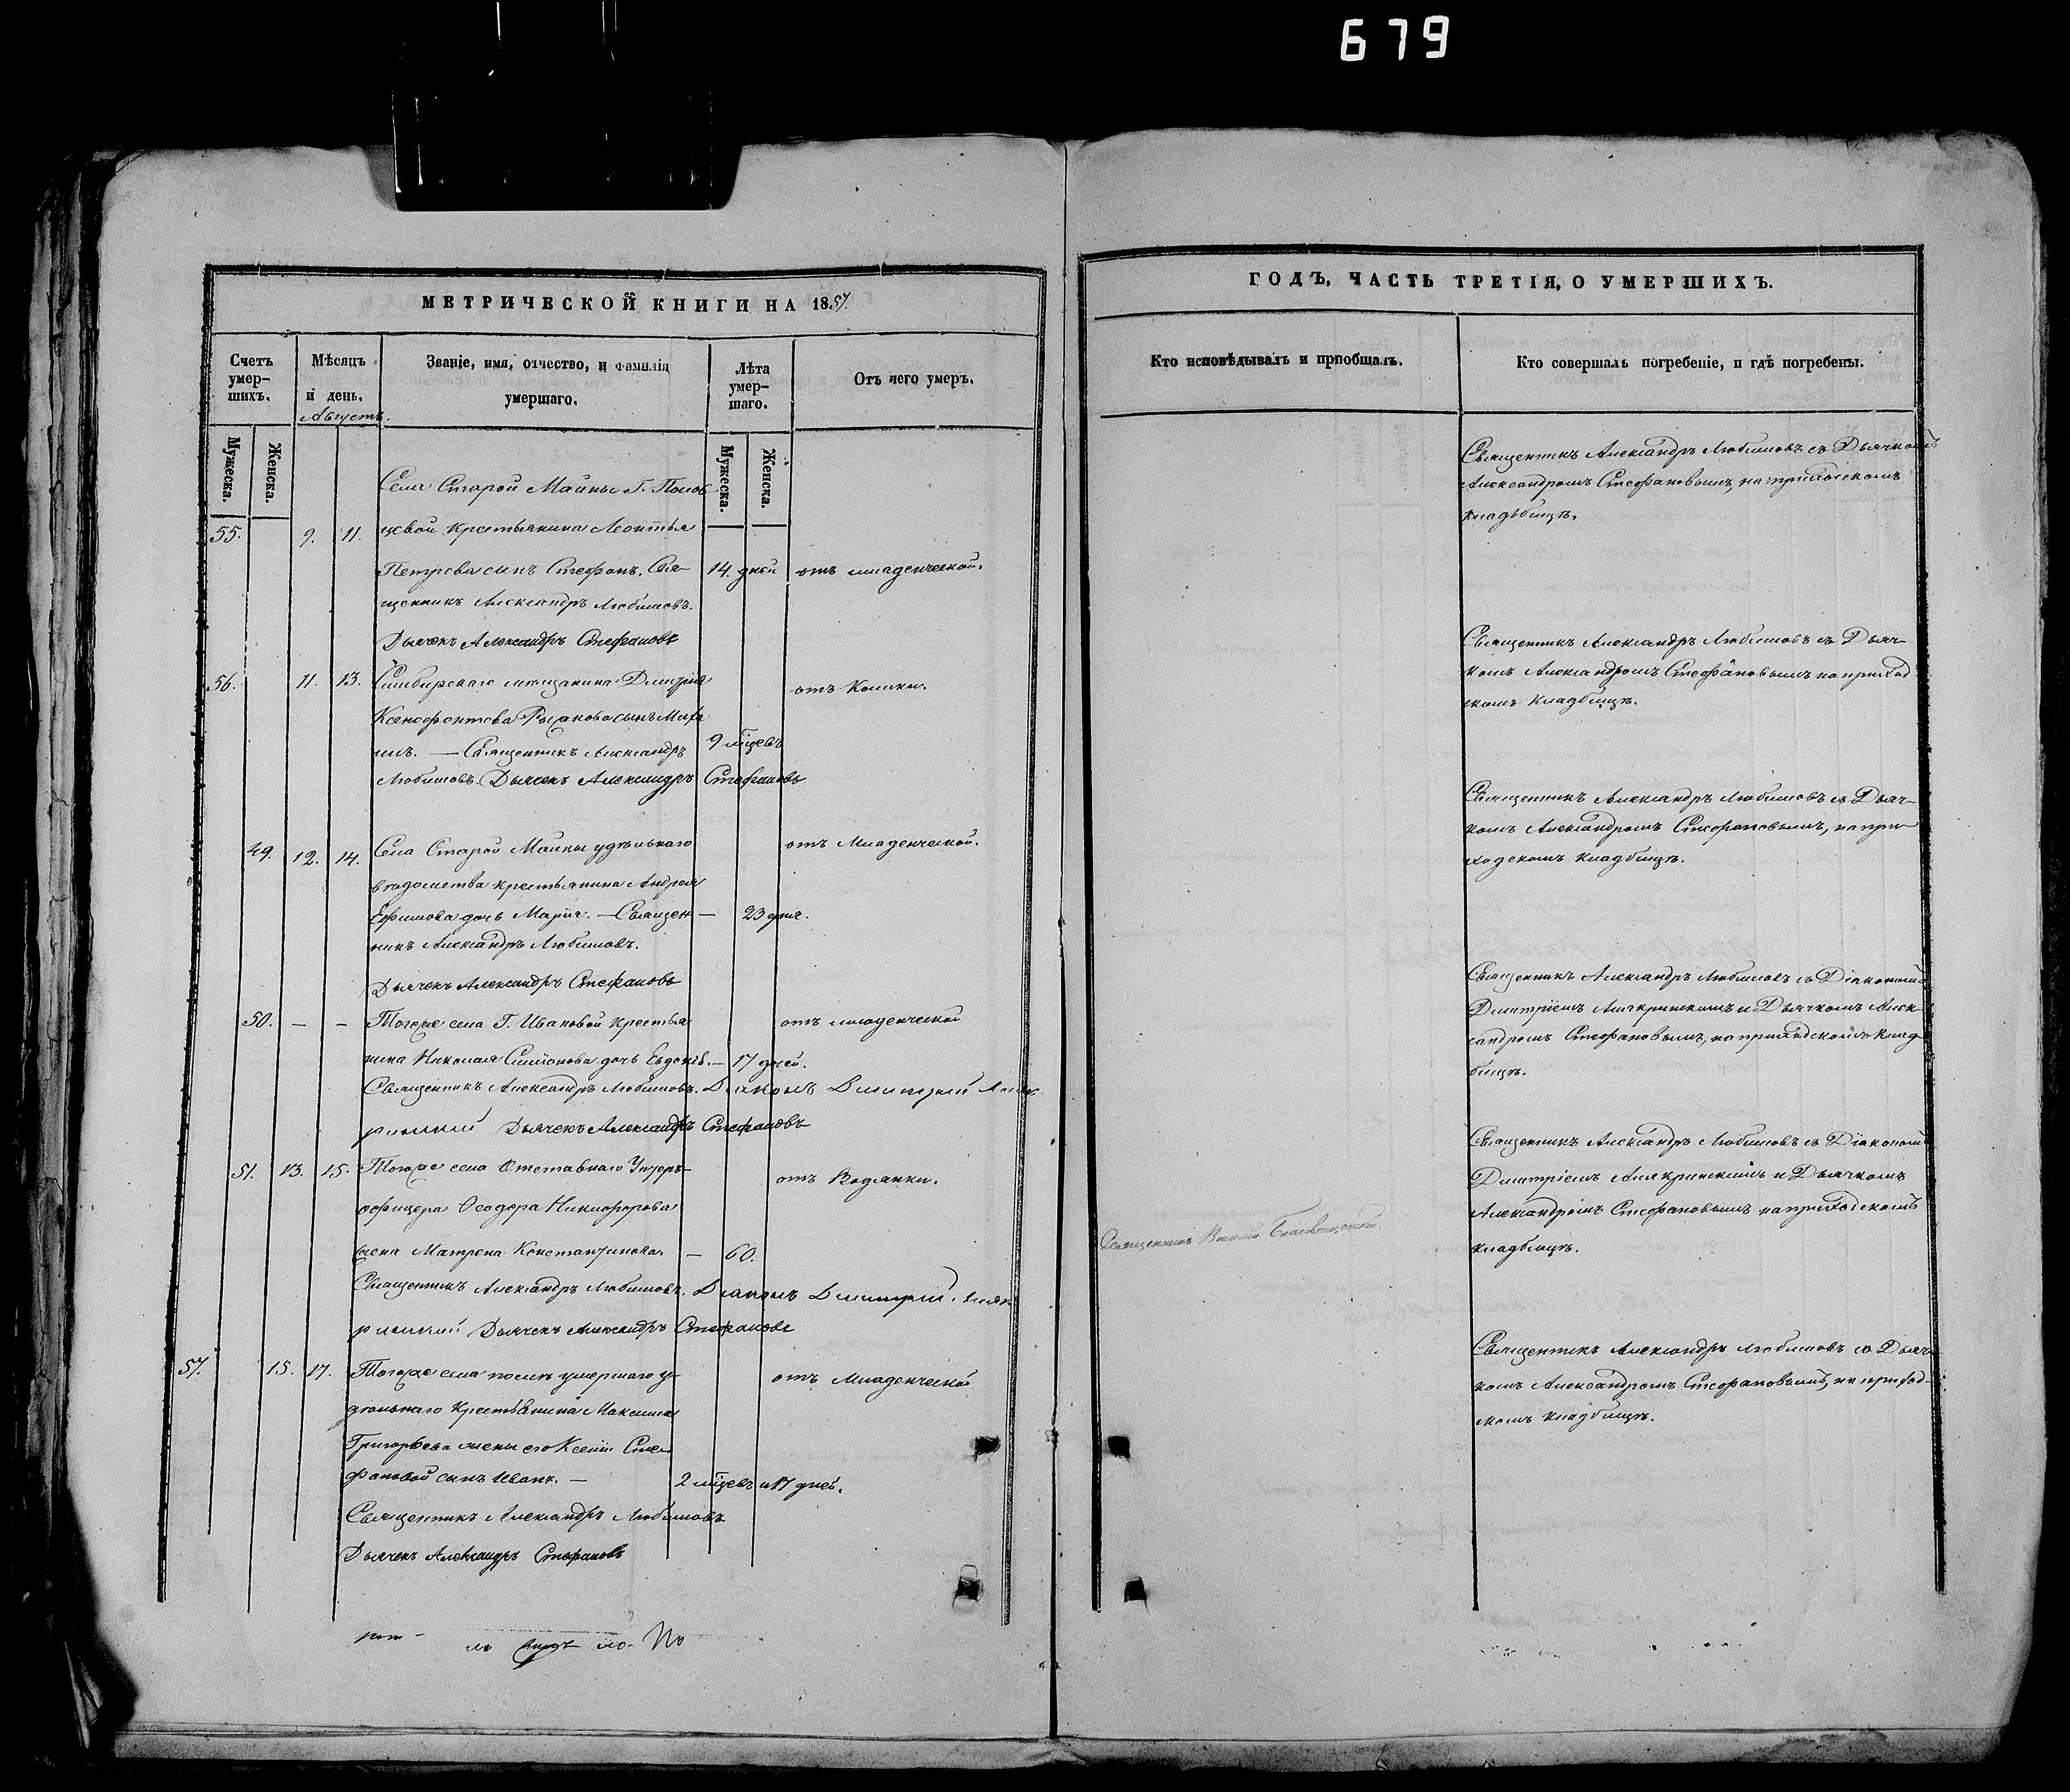 679
МЕТРИЧЕСКОЙ КНИГИ НА 1857.
Счетъ умер-шихъ.
Мѣсяцъ и день.
Августъ.
Званіе, имя, отчество, и фамилія умершаго.
Лѣта умер-шаго.
Отъ чего умеръ.
Мужеска.
Женска.
Мужеска.
Женска.
Села Старой Майны Г.
55. 9. 11. цевой крестьянина Леонтья
Петрова сынъ Стефанъ. Свя- 14. дней отъ младенческой.
щенникъ Александръ Любимовъ.
Дьячекъ Александръ Стефановъ
56. 11. 13. Симбирскаго мещанина Дмитрія отъ
Ксенофонтова сынъ Миха
илъ. — Священникъ Александръ 9 мцевъ
Любимовъ. Дьячекъ Александръ Стефановъ
49. 12. 14. Села Старой Майны удѣльнаго отъ Младенческой.
вѣдомства крестьянина Андрея
Ефимова дочь Марія. — Священ — 23 дня.
никъ Александръ Любимовъ.
Дьячекъ Александръ Стефановъ
50. — — Тогоже села Г. Ивановой крестья отъ младенческой
нина Николая Симіонова дочь — 17 дней.
Священникъ Александръ Любимовъ. Діаконъ Дмитрій Алак
ринскій Дьячекъ Александръ Стефановъ
51. 13. 15. Тогоже села Отставнаго Унтеръ- отъ Водянки.
офицера Ѳеодора Никифорова
жена Матрена Константинова. — 60.
Священникъ Александръ Любимовъ. Діаконъ Дмитрій Алак
ринскій Дьячекъ Александръ Стефановъ
57. 15. 17. Тогоже села послѣ умершаго у- отъ Младенческой
дѣльнаго Крестьянина Максима
Григорьева жены его Ксеніи Сте
фановой сынъ Иванъ. —
2 мцевъ и 17 дней.
Священникъ Александръ Любимовъ
Дьячекъ Александръ Стефановъ
ГОДЪ, ЧАСТЬ ТРЕТІЯ, О УМЕРШИХЪ.
Кто исповѣдывалъ и пріобщалъ.
Кто совершалъ погребеніе, и гдѣ погребены.
Священникъ Александръ Любимовъ съ Дьячкомъ
Александромъ Стефановымъ, на приходскомъ
кладбищѣ.
Священникъ Александръ Любимовъ съ Дьяч-
комъ Александромъ Стефановымъ на приход
скомъ кладбищѣ.
Священникъ Александръ Любимовъ съ Дьяч-
комъ Александромъ Стефановымъ, на при-
ходскомъ кладбищѣ.
Священникъ Александръ Любимовъ съ Діакономъ
Дмитріемъ Алакринскимъ и Дьячкомъ Алек
сандромъ Стефановымъ, на приходскомъ клад
бищѣ.
Священникъ Александръ Любимовъ съ Діакономъ
Дмитріемъ Алакринскимъ и Дьячкомъ
Александромъ Стефановымъ на приходскомъ
кладбищѣ.
Священникъ
Священникъ Александръ Любимовъ съ Дьяч-
комъ Александромъ Стефановымъ, на приход-
скомъ кладбищѣ.